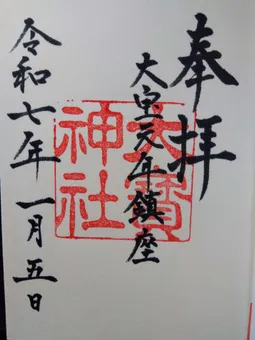 奉拝
大宝元年鎮座
大寳神社
令和七年一月五日